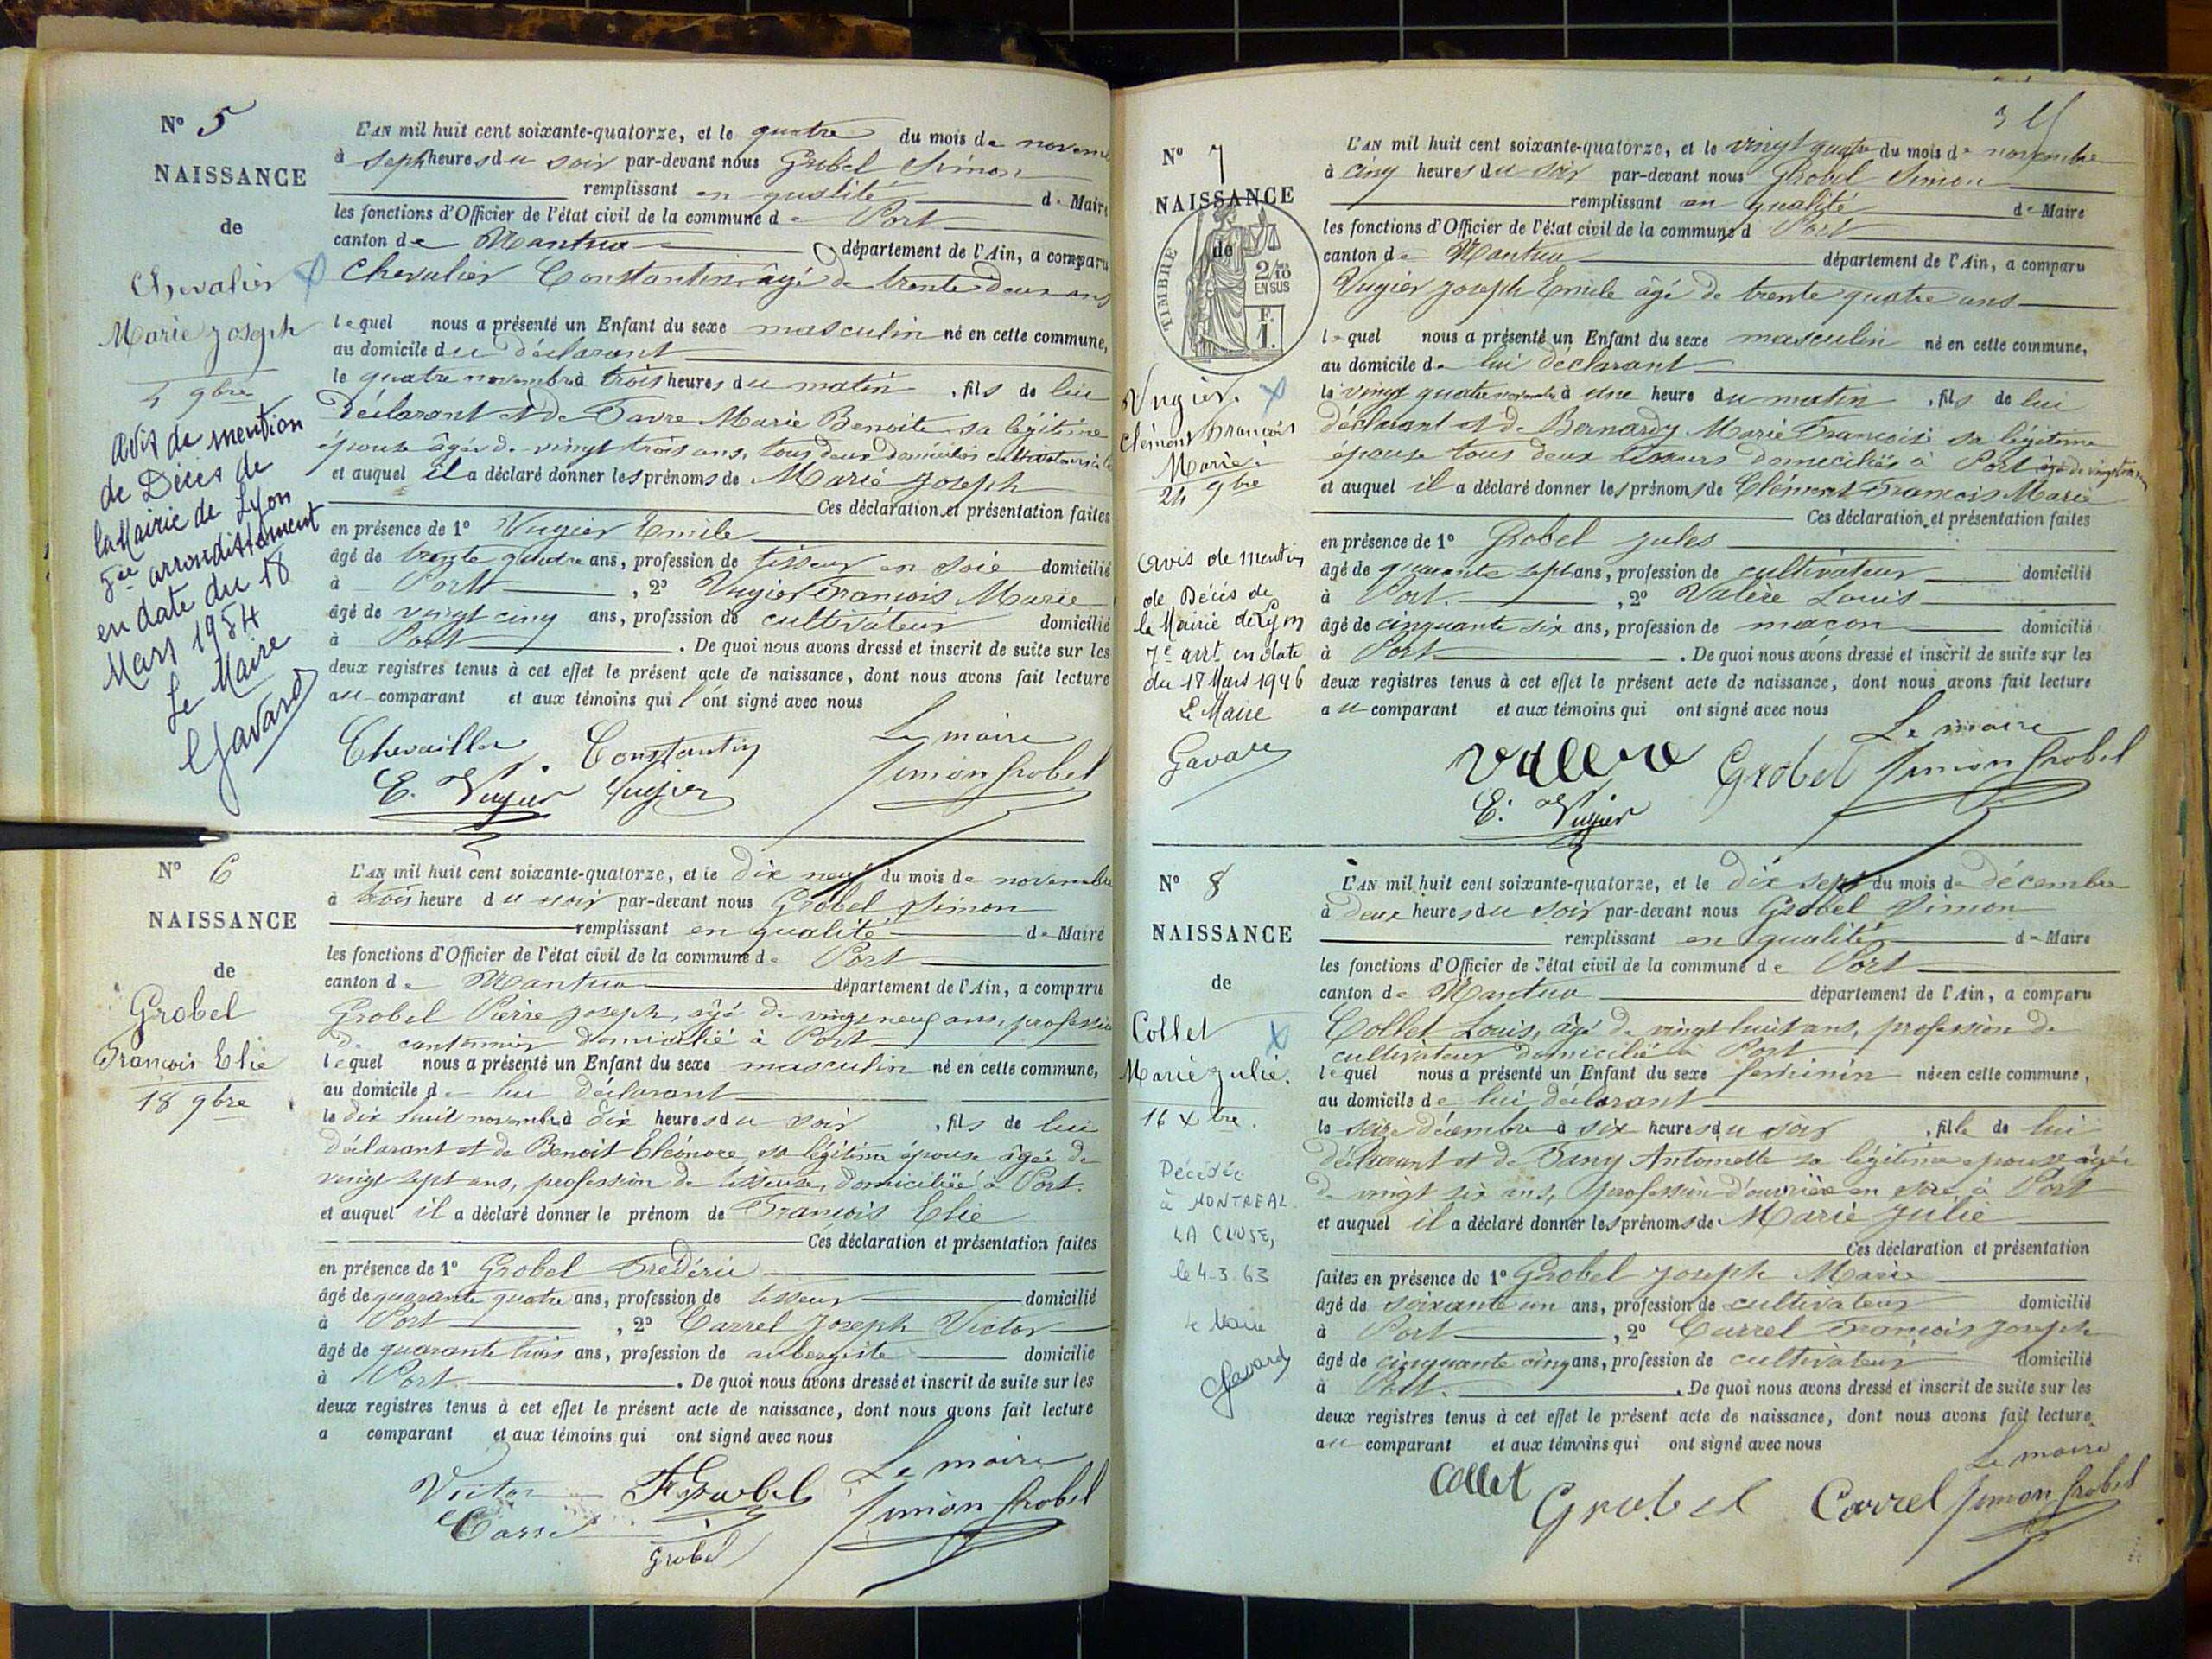 N° 5
NAISSANCE
de
Chevalier
Marie Joseph
4 9bre
Avis de mention
de Décès de
la Mairie de Lyon
5ee arrondissement
en date du 18
Mars 1954
Le Maire
Gavard
L'AN mil huit cent soixante-quatorze, et le quatre du mois de novem
à sept heures du soir par-devant nous Grobel Simon
remplissant en qualité de Maire
les fonctions d'Officier de l'état civil de la commune de Port
canton de Mantua département de l'Ain, a comparu
Chevalier Constantin âgé de trente deux ans
lequel nous a présenté un Enfant du sexe masculin né en cette commune,
au domicile du déclarant
le quatre novembre à trois heures du matin, fils de lui
déclarant et de Favre Marie Benoite sa légitime
épouse âgée de vingt trois ans, tous deux domiciliés cultivateurs à
et auquel il a déclaré donner les prénoms de Marie Joseph
Ces déclaration et présentation faites
en présence de 1° Vugier Emile
âgé de trente quatre ans, profession de tisseur en soie domicilié
à Port, 2° Vugier François Marie
âgé de vingt cinq ans, profession de cultivateur domicilié
à Port. De quoi nous avons dressé et inscrit de suite sur les
deux registres tenus à cet effet le présent acte de naissance, dont nous avons fait lecture
au comparant et aux témoins qui l'ont signé avec nous
Chevaillier Constantin Le maire
E. Vugier Vugier Simon Grobel
N° 6
NAISSANCE
de
Grobel
François Elie
18 9bre
L'AN mil huit cent soixante-quatorze, et le dix neuf du mois de novembre
à trois heure du soir par-devant nous Grobel Simon
remplissant en qualité de Maire
les fonctions d'Officier de l'état civil de la commune de Port
canton de Mantua département de l'Ain, a comparu
Grobel Pierre Joseph, âgé de vingt neuf ans, profession
de cantonnier domicilié à Port
lequel nous a présenté un Enfant du sexe masculin né en cette commune,
au domicile de lui déclarant
le dix huit novembre à dix heures du soir, fils de lui
déclarant et de Benoit Eléonore, sa légitime épouse âgée de
vingt sept ans, profession de tisseuse, domiciliée à Port.
et auquel il a déclaré donner le prénom de François Elie
Ces déclaration et présentation faites
en présence de 1° Grobel Frédéric
âgé de quarante quatre ans, profession de tisseur domicilié
à Port, 2° Carrel Joseph Victor
âgé de quarante trois ans, profession de aubergiste domicilié
à Port. De quoi nous avons dressé et inscrit de suite sur les
deux registres tenus à cet effet le présent acte de naissance, dont nous avons fait lecture
a comparant et aux témoins qui ont signé avec nous
Victor F Grobel Le maire
Carrel Grobel Simon Grobel
N° 7
NAISSANCE
de
TIMBRE
2/10
EN SUS
F.
1.
Vugier
Clément François
Marie
24 9bre
Avis de mention
de Décès de
la Mairie de Lyon
7e arrt en date
du 18 Mars 1946
Le Maire
Gavard
L'AN mil huit cent soixante-quatorze, et le vingt quatre du mois de novembre
à cinq heures du soir par-devant nous Grobel Simon
remplissant en qualité de Maire
les fonctions d'Officier de l'état civil de la commune d Port
canton de Mantua département de l'Ain, a comparu
Vugier Joseph Emile âgé de trente quatre ans
lequel nous a présenté un Enfant du sexe masculin né en cette commune,
au domicile de lui déclarant
le vingt quatre novembre à une heure du matin, fils de lui
déclarant et de Bernardy Marie Françoise sa légitime
épouse tous deux tisseurs domiciliés à Port
et auquel il a déclaré donner les prénoms de Clément François Marie
Ces déclaration et présentation faites
en présence de 1° Grobel Jules
âgé de quarante sept ans, profession de cultivateur domicilié
à Port., 2° Valère Louis
âgé de cinquante six ans, profession de maçon domicilié
à Port. De quoi nous avons dressé et inscrit de suite sur les
deux registres tenus à cet effet le présent acte de naissance, dont nous avons fait lecture
au comparant et aux témoins qui ont signé avec nous
Le maire
Vallere Grobel Simon Grobel
E. Vugier
N° 8
NAISSANCE
de
Collet
Marie Julie.
16 Xbre.
Décédée
à MONTREAL
LA CLUSE,
le 4-3-63
Le Maire
Gavard
L'AN mil huit cent soixante-quatorze, et le dix sept du mois de décembre
à deux heures du soir par-devant nous Grobel Simon
remplissant en qualité de Maire
les fonctions d'Officier de l'état civil de la commune de Port
canton de Mantua département de l'Ain, a comparu
Collet Louis, âgé de vingt huit ans, profession de
cultivateur domicilié à Port
lequel nous a présenté un Enfant du sexe féminin née en cette commune,
au domicile de lui déclarant
le seize décembre à six heures du soir, fille de lui
déclarant et de Fany Antoinette sa légitime épouse âgée
de vingt six ans, profession d'ouvrière en soie à Port
et auquel il a déclaré donner les prénoms de Marie Julie
Ces déclaration et présentation
faites en présence de 1° Grobel Joseph Marie
âgé de soixante un ans, profession de cultivateur domicilié
à Port, 2° Carrel François Joseph
âgé de cinquante cinq ans, profession de cultivateur domicilié
à Port. De quoi nous avons dressé et inscrit de suite sur les
deux registres tenus à cet effet le présent acte de naissance, dont nous avons fait lecture
au comparant et aux témoins qui ont signé avec nous
Le maire
Collet Grobel Carrel Simon Grobel